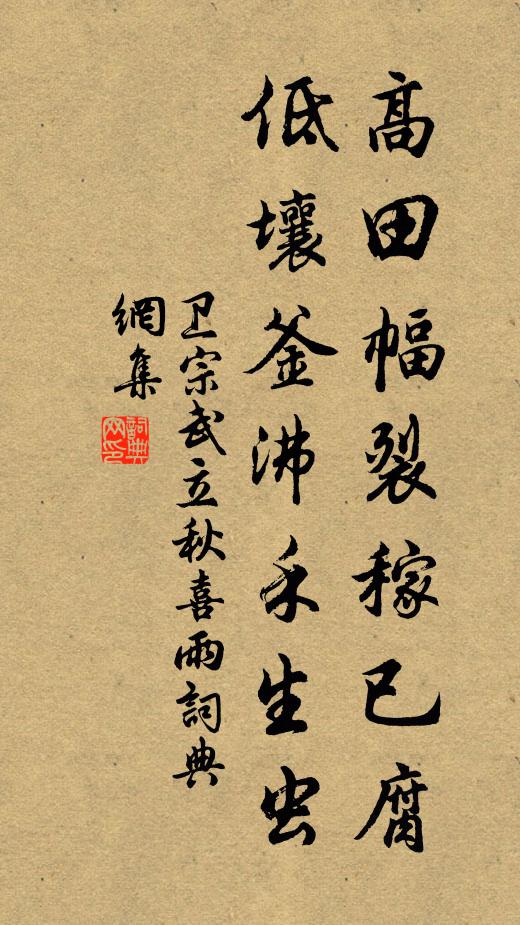 高田幅裂稼已腐
低壤釜沸禾生虫
卫宗武立秋喜雨詞典
網集
詞典
网印